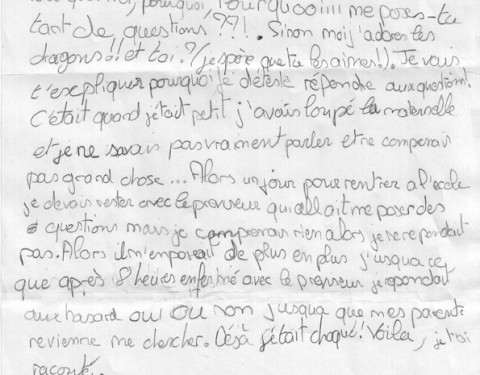 pourquoi, Pourquoiiii me poses-tu
tant de questions ??!. Sinon moi j'adore les
dragons !! et toi ? (j'espère que tu les aimes!). Je vais
t'expliquer pourquoi je déteste répondre aux questions!
C'était quand j'était petit j'avais loupé la maternelle
et je ne savais pas vraiment parler et ne comprenais
pas grand chose... Alors un jour pour rentrer a l'ecole
je devais rester avec le professeur qui allait me poser des
questions mais je comprenais rien alors je ne repondait
pas. Alors il m'en posait de plus en plus j'usqua ce
que après 8 heures enfermé avec le professeur je repondait
aux hasard oui ou non jusqua que mes parents
revienne me chercher. Déjà j'étais choqué! Voila, je t'ai
raconté.